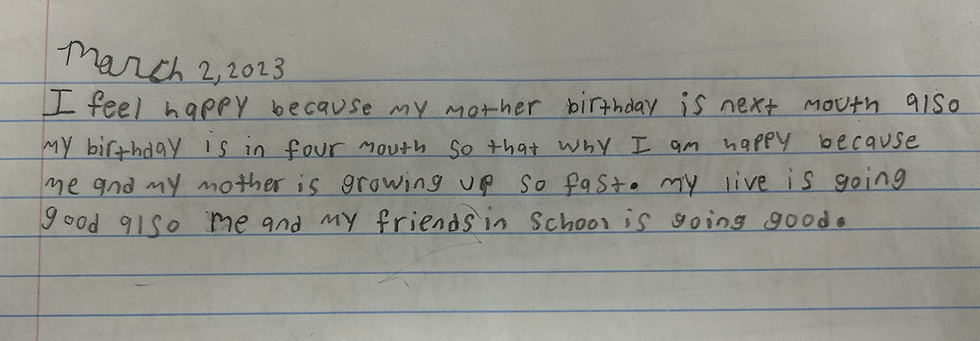 March 2, 2023
I feel happy because my mother birthday is next mouth also
my birthday is in four mouth so that why I am happy because
me and my mother is growing up so fast. my live is going
good also me and my friends in school is going good.